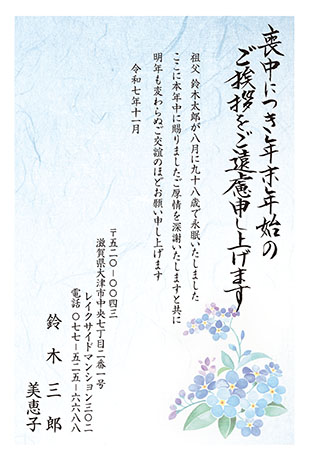 喪中につき年末年始の
ご挨拶をご遠慮申し上げます
祖父 鈴木太郎が八月に九十八歳で永眠いたしました
ここに本年中に賜りましたご厚情を深謝いたしますと共に
明年も変わらぬご交誼のほどお願い申し上げます
令和七年十一月
〒五二〇-〇〇四三
滋賀県大津市中央七丁目二番一号
レイクサイドマンション三〇二
電話 〇七七-五二五-六六八八
鈴木三郎
美恵子